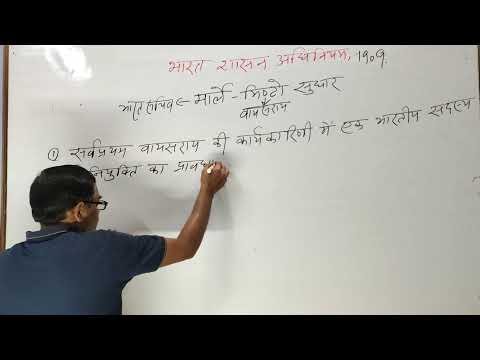 भारत शासन अधिनियम, 1909
भारत सचिव ← मार्ले - मिण्टो सुधार
वायसराय
① सर्वप्रथम वायसराय की कार्यकारिणी में एक भारतीय सदस्य
नियुक्ति का प्रावधा